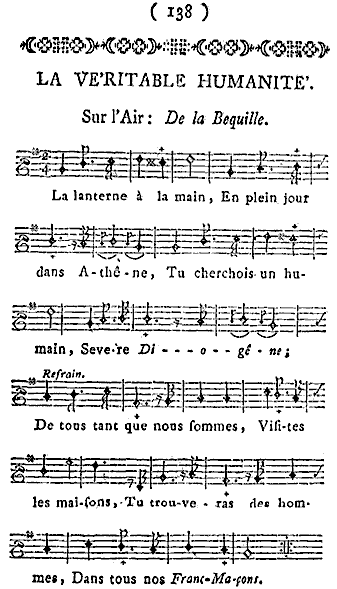 ( 138 )
LA VE'RITABLE HUMANITE'.
Sur l'Air: De la Bequille.
La lanterne à la main, En plein jour
dans A-thê-ne, Tu cherchois un hu-
main, Seve-re Di - - - o - gê - ne;
Refrain.
De tous tant que nous sommes, Visi-tes
les mai-sons, Tu trou-ve-ras des hom-
mes, Dans tous nos Franc-Ma-çons.